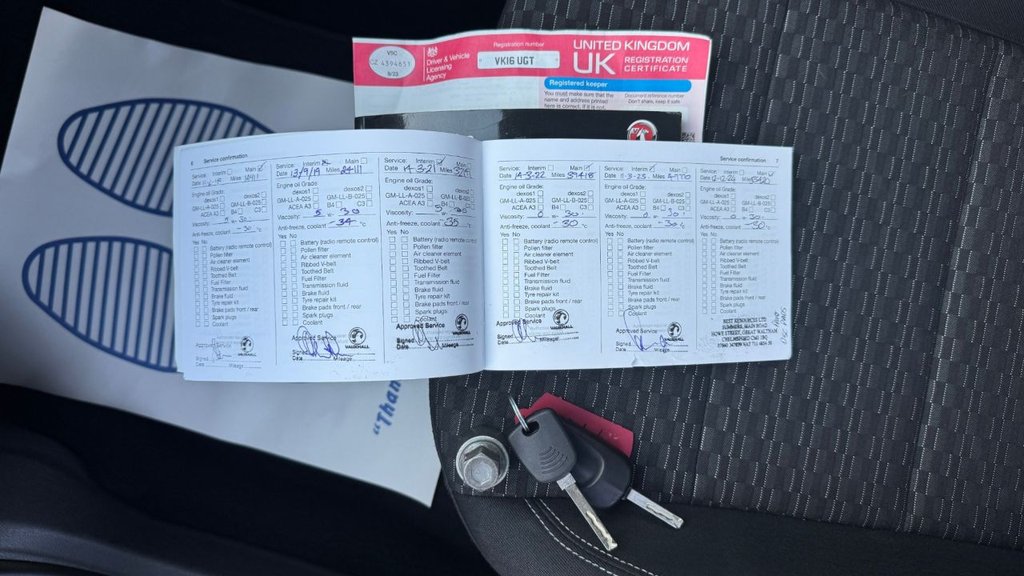 V5C
Driver & Vehicle
Licensing
Agency
Registration number
VK16 UGT
UNITED KINGDOM
UK
REGISTRATION
CERTIFICATE
Registered keeper
You must make sure that the
name and address printed
here is correct. If it is not,
Document reference number
Don't share, keep it safe
6 Service confirmation
Service: Interim Main
Date Miles
Engine oil Grade:
dexos1
GM-LL-A-025 GM-LL-B-025
ACEA A3 B4 C3
Viscosity: 5 30
Anti-freeze, coolant -30 °c
Yes No
Battery (radio remote control)
Pollen filter
Air cleaner element
Ribbed V-belt
Toothed Belt
Fuel Filter
Transmission fluid
Brake fluid
Tyre repair kit
Brake pads front / rear
Spark plugs
Coolant
Signed
Date Mileage
Service: Interim Main
Date 13/9/19 Miles 24111
Engine oil Grade:
dexos1 dexos2
GM-LL-A-025 GM-LL-B-025
ACEA A3 B4 C3
Viscosity: 5 30
Anti-freeze, coolant -34 °c
Yes No
Battery (radio remote control)
Pollen filter
Air cleaner element
Ribbed V-belt
Toothed Belt
Fuel Filter
Transmission fluid
Brake fluid
Tyre repair kit
Brake pads front / rear
Spark plugs
Coolant
Approved Service
VAUXHALL
Signed
Date Mileage
Service: Interim Main
Date 14.3.21 Miles
Engine oil Grade:
dexos1 dexos2
GM-LL-A-025 GM-LL-B-025
ACEA A3 B4 C3
Viscosity: 30
Anti-freeze, coolant -35 °c
Yes No
Battery (radio remote control)
Pollen filter
Air cleaner element
Ribbed V-belt
Toothed Belt
Fuel Filter
Transmission fluid
Brake fluid
Tyre repair kit
Brake pads front / rear
Spark plugs
Coolant
Approved Service
VAUXHALL
Signed
Date Mileage
Service confirmation 7
Service: Interim Main
Date 14-3-22 Miles 39418
Engine oil Grade:
dexos1 dexos2
GM-LL-A-025 GM-LL-B-025
ACEA A3 B4 C3
Viscosity: 0 30
Anti-freeze, coolant -30 °c
Yes No
Battery (radio remote control)
Pollen filter
Air cleaner element
Ribbed V-belt
Toothed Belt
Fuel Filter
Transmission fluid
Brake fluid
Tyre repair kit
Brake pads front / rear
Spark plugs
Coolant
Approved Service
VAUXHALL
Signed
Date Mileage
Service: Interim Main
Date Miles
Engine oil Grade:
dexos1 dexos2
GM-LL-A-025 GM-LL-B-025
ACEA A3 B4 C3
Viscosity: 0 30
Anti-freeze, coolant -30 °c
Yes No
Battery (radio remote control)
Pollen filter
Air cleaner element
Ribbed V-belt
Toothed Belt
Fuel Filter
Transmission fluid
Brake fluid
Tyre repair kit
Brake pads front / rear
Spark plugs
Coolant
Approved Service
VAUXHALL
Signed
Date Mileage
Service: Interim Main
Date Miles
Engine oil Grade:
dexos1 dexos2
GM-LL-A-025 GM-LL-B-025
ACEA A3 B4 C3
Viscosity: 0 30
Anti-freeze, coolant -30 °c
Yes No
Battery (radio remote control)
Pollen filter
Air cleaner element
Ribbed V-belt
Toothed Belt
Fuel Filter
Transmission fluid
Brake fluid
Tyre repair kit
Brake pads front / rear
Spark plugs
Coolant
SUMMERS, MAIN ROAD
HOWE STREET, GREAT WALTHAM
"Than